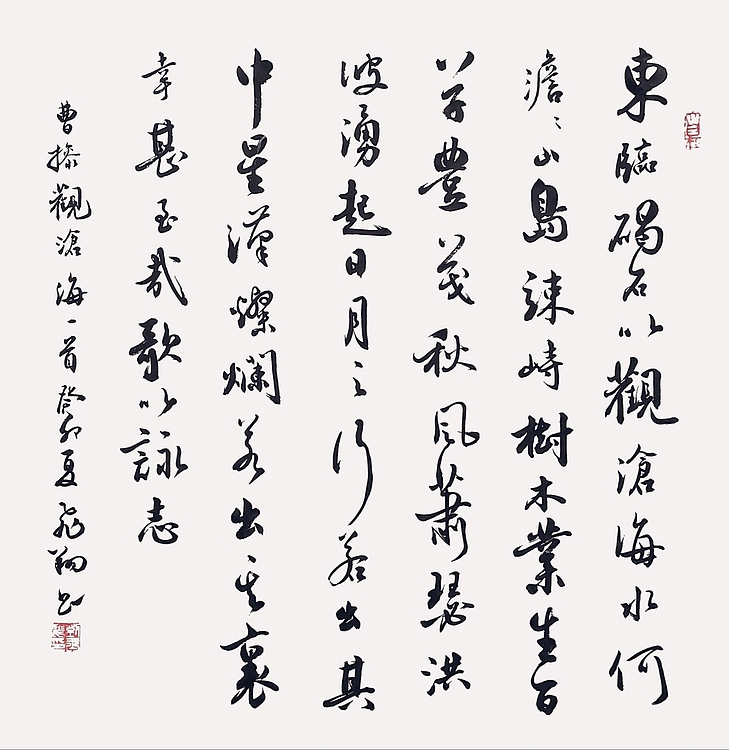 東臨碣石以觀滄海水何
澹〻山島竦峙樹木叢生百
草豐茂秋風蕭瑟洪
波湧起日月之行若出其
中星漢燦爛若出其裏
幸甚至哉歌以詠志
曹操觀滄海一首癸卯夏飛翔書